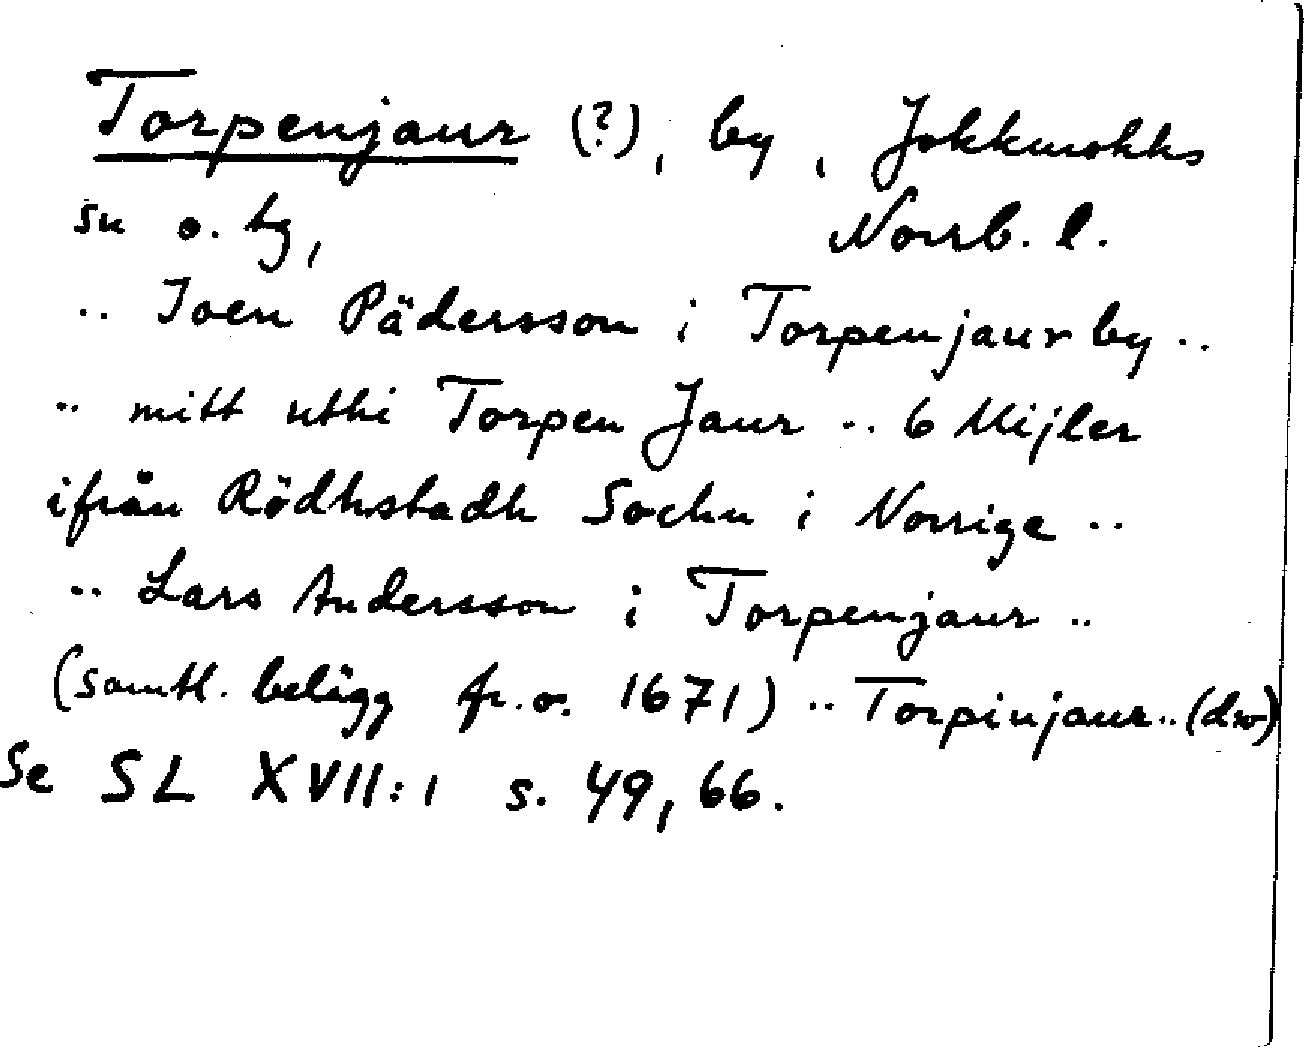 Torpenjaur (?), by, Jokkmokks
sn o. tg, Norrb. l.
.. Joen Pädersson i Torpenjaur by ..
.. mitt uthi Torpen Jaur .. 6 Mijler
ifrån Rödhstadh Sochn i Norrige ..
.. Lars Andersson i Torpenjaur ..
(samtl. belägg fr. o. 1671) .. Torpinjaur .. (do)
Se SL XVII:1 s. 49, 66.